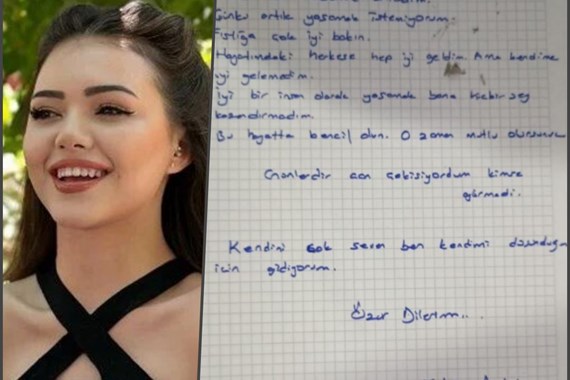 Çünkü artık yaşamak istemiyorum.
Fıstığa çok iyi bakın.
Hayatımdaki herkese hep iyi geldim. Ama kendime
iyi gelemedim.
İyi bir insan olarak yaşamak bana hiçbir şey
kazandırmadım.
Bu hayatta bencil olun. O zaman mutlu olursunuz
can çekişiyordum kimse
görmedi.
Kendini çok seven ben kendimi düşündüğüm
için gidiyorum.
Özür Dilerim...